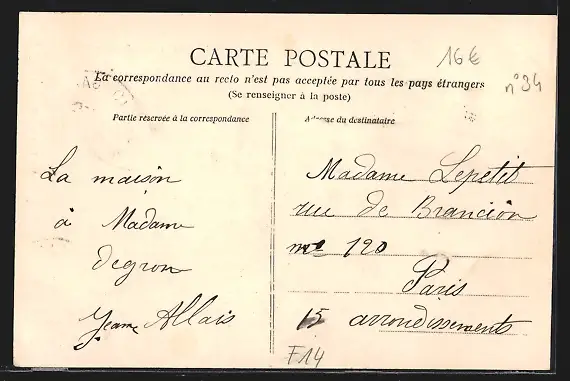 CARTE POSTALE
16€
La correspondance au recto n'est pas acceptée par tous les pays étrangers
n°34
(Se renseigner à la poste)
Partie réservée à la correspondance
La maison
à Madame
Degron
Jeanne Allais
Adresse du destinataire
Madame Lepetit
rue de Brancion
n° 120
Paris
15 arrondissements
F14